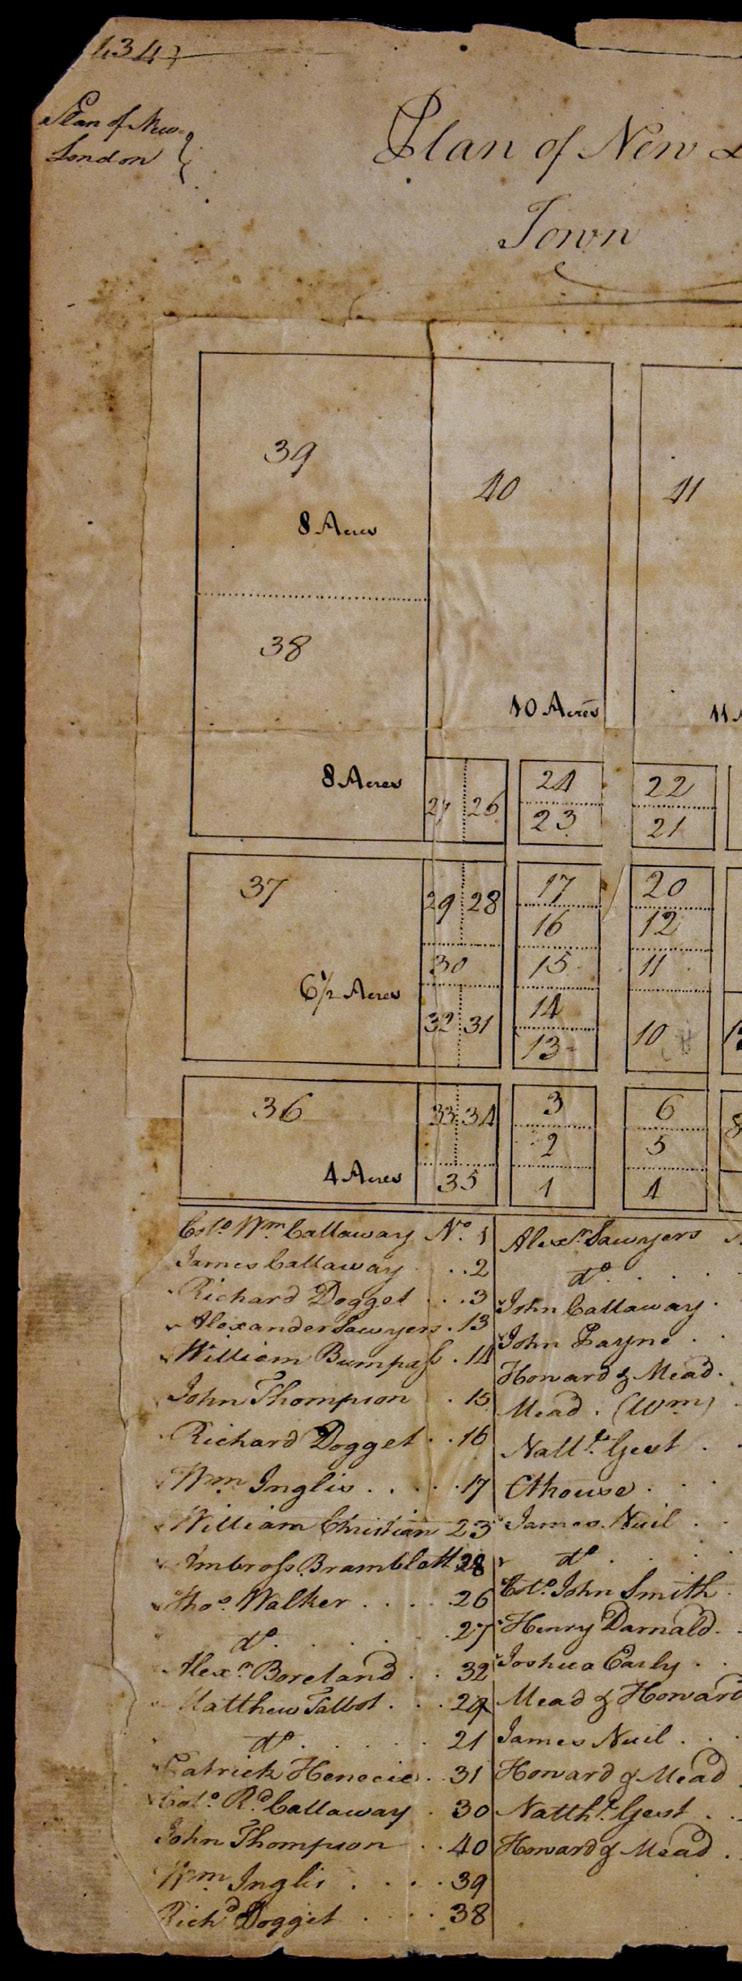 434}
Plan of New
London }
Plan of New L
Town
39
8 Acres
40
41
38
10 Acres
11 A
8 Acres
27 26
24
23
22
21
37
6½ Acres
29 28
30
32 31
17
16
15
14
13
20
12
11
10
36
4 Acres
33 34
35
3
2
1
6
5
4
8
Colo. Wm. Callaway No. 1
James Callaway . . 2
Richard Dogget . . . 3
Alexander Sawyers . 13
William Bumpass . 14
John Thompson . 15
Richard Dogget . . 16
Wm. Inglis . . . . 17
William Christian 23
Ambross Bramblett 28
Thos. Walker . . . . 26
do. . . . . 27
Alexr. Boreland . . 32
Matthew Talbot . . . 29
do. . . . . 21
Patrick Henecie . . 31
Colo. Rd. Callaway . 30
John Thompson . . 40
Wm. Inglis . . . . 39
Richd. Dogget . . . . 38
Alexr. Sawyers
do. . . .
John Callaway .
John Payne . .
Howard & Mead .
Mead . (Wm)
Natt. Gest . .
Cthouse . . .
James Nuil . .
do. . . .
Colo. John Smith .
Henry Darnald . .
Joshua Early . .
Mead & Howard
James Nuil . . .
Howard & Mead
Natth. Gest . .
Howard & Mead . .